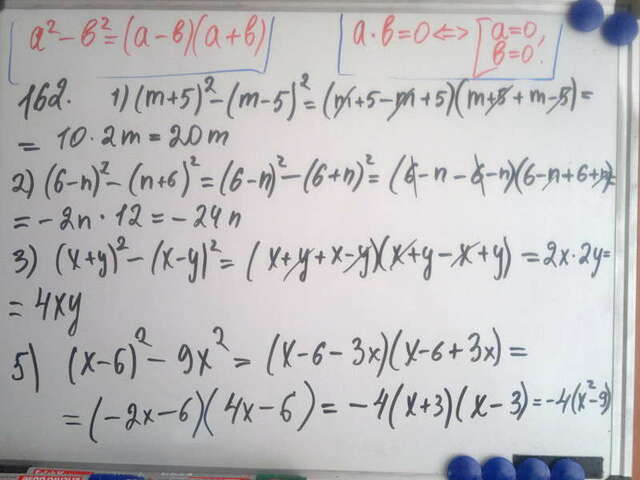 a² - в² = (a - в)(a + в)
a · в = 0 <=> [a = 0, в = 0.
162. 1) (m+5)² - (m-5)² = (m+5-m+5)(m+5+m-5) =
= 10 · 2m = 20m
2) (6-n)² - (n+6)² = (6-n)² - (6+n)² = (6-n-6-n)(6-n+6+n) =
= -2n · 12 = -24n
3) (x+y)² - (x-y)² = (x+y+x-y)(x+y-x+y) = 2x·2y =
= 4xy
5) (x-6)² - 9x² = (x-6-3x)(x-6+3x) =
= (-2x-6)(4x-6) = -4(x+3)(x-3) = -4(x²-9)